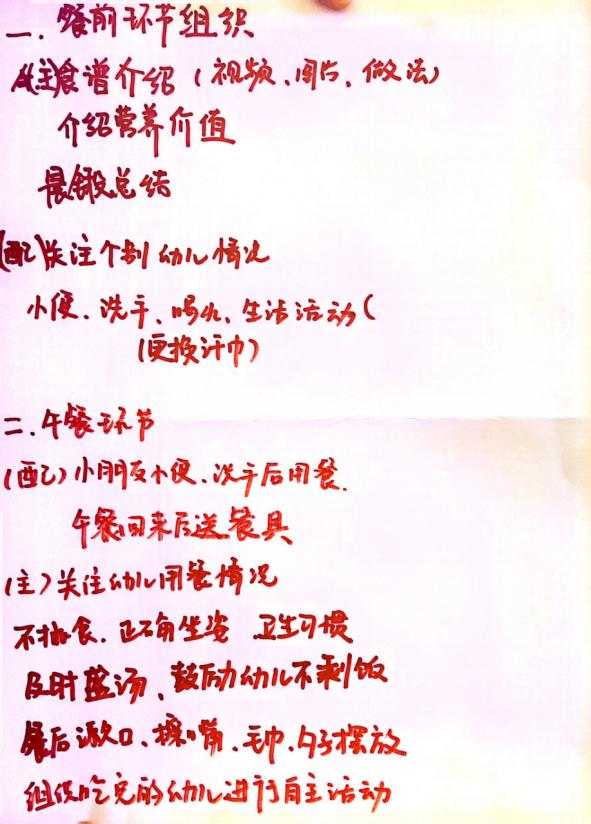 一.餐前环节组织
(主)食谱介绍(视频、图片、做法)
介绍营养价值
晨锻总结
(配)关注个别幼儿情况
小便.洗手、喝水、生活活动(
(更换汗巾)
二.午餐环节
(配)小朋友小便.洗手后用餐.
午餐回来后送餐具
(主)关注幼儿用餐情况
不挑食.正确坐姿 卫生习惯
及时盛汤、鼓励幼儿不剩饭
餐后漱口、擦嘴、毛巾、勺子摆放
组织吃完的幼儿进行自主活动